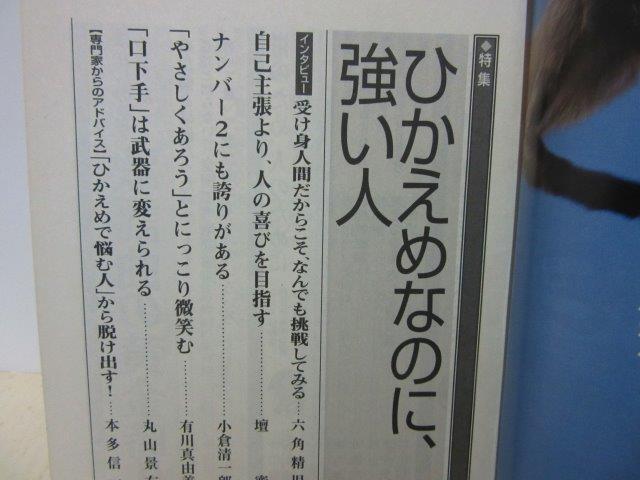 ◆特集
ひかえめなのに、
強い人
インタビュー 受け身人間だからこそ、なんでも挑戦してみる……六角精
自己主張より、人の喜びを目指す……壇
ナンバー2にも誇りがある……小倉清一郎
「やさしくあろう」とにっこり微笑む……有川真由美
「口下手」は武器に変えられる……丸山景
【専門家からのアドバイス】「ひかえめで悩む人」から脱け出す!……本多信